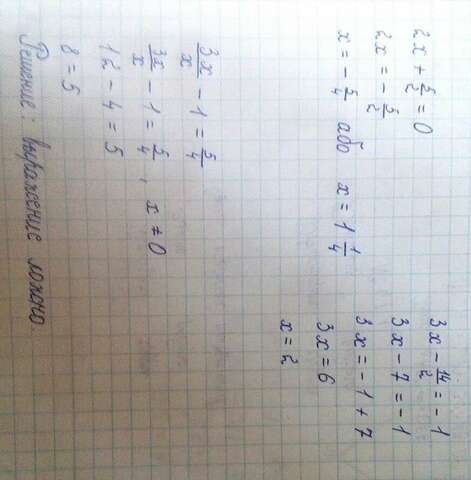 2x + 5/2 = 0
2x = - 5/2
x = - 5/4 або x = 1 1/4
3x/x - 1 = 5/4
3x/x - 1 = 5/4, x ≠ 0
12 - 4 = 5
8 = 5
Решение: выражение ложно.
3x - 14/2 = - 1
3x - 7 = - 1
3x = - 1 + 7
3x = 6
x = 2